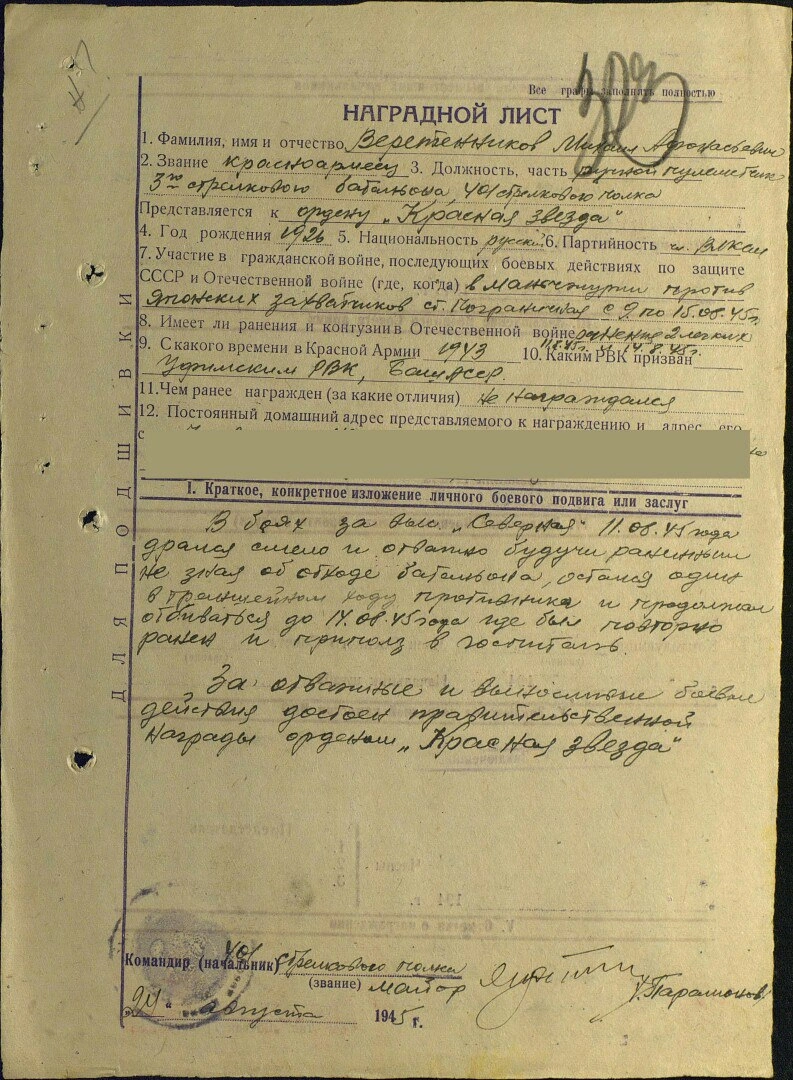 Все графы заполнять полностью
НАГРАДНОЙ ЛИСТ
1. Фамилия, имя и отчество Веретенников Михаил Афонасьевич
2. Звание красноармеец 3. Должность, часть ручной пулеметчик
3го стрелкового батальона, 401 стрелкового полка
Представляется к ордену „Красная звезда"
4. Год рождения 1926 5. Национальность русский 6. Партийность чл. ВЛКСМ
7. Участие в гражданской войне, последующих боевых действиях по защите
СССР и Отечественной войне (где, когда) в Манчжурии против
японских захватчиков ст. Пограничная с 9 по 15.08.45г.
8. Имеет ли ранения и контузии в Отечественной войне ранения 2 легких
11.8.45г. и 14.8.45г.
9. С какого времени в Красной Армии 1943 10. Каким РВК призван
Уфимским РВК, БашАССР.
11. Чем ранее награжден (за какие отличия) не награждался
12. Постоянный домашний адрес представляемого к награждению и адрес его
I. Краткое, конкретное изложение личного боевого подвига или заслуг
В боях за выс. „Северная" 11.08.45 года
дрался смело и отважно будучи раненным
не зная об отходе батальона, остался один
в траншейном ходу противника и продолжал
отбиваться до 14.08.45 года где был повторно
ранен и приполз в госпиталь.
За отважные и выносливые боевые
действия достоен правительственной
награды орденом „Красная звезда"
Командир (начальник) 401 стрелкового полка
(звание) майор
Парамонов
„24" августа 1945 г.
ДЛЯ ПОДШИВКИ